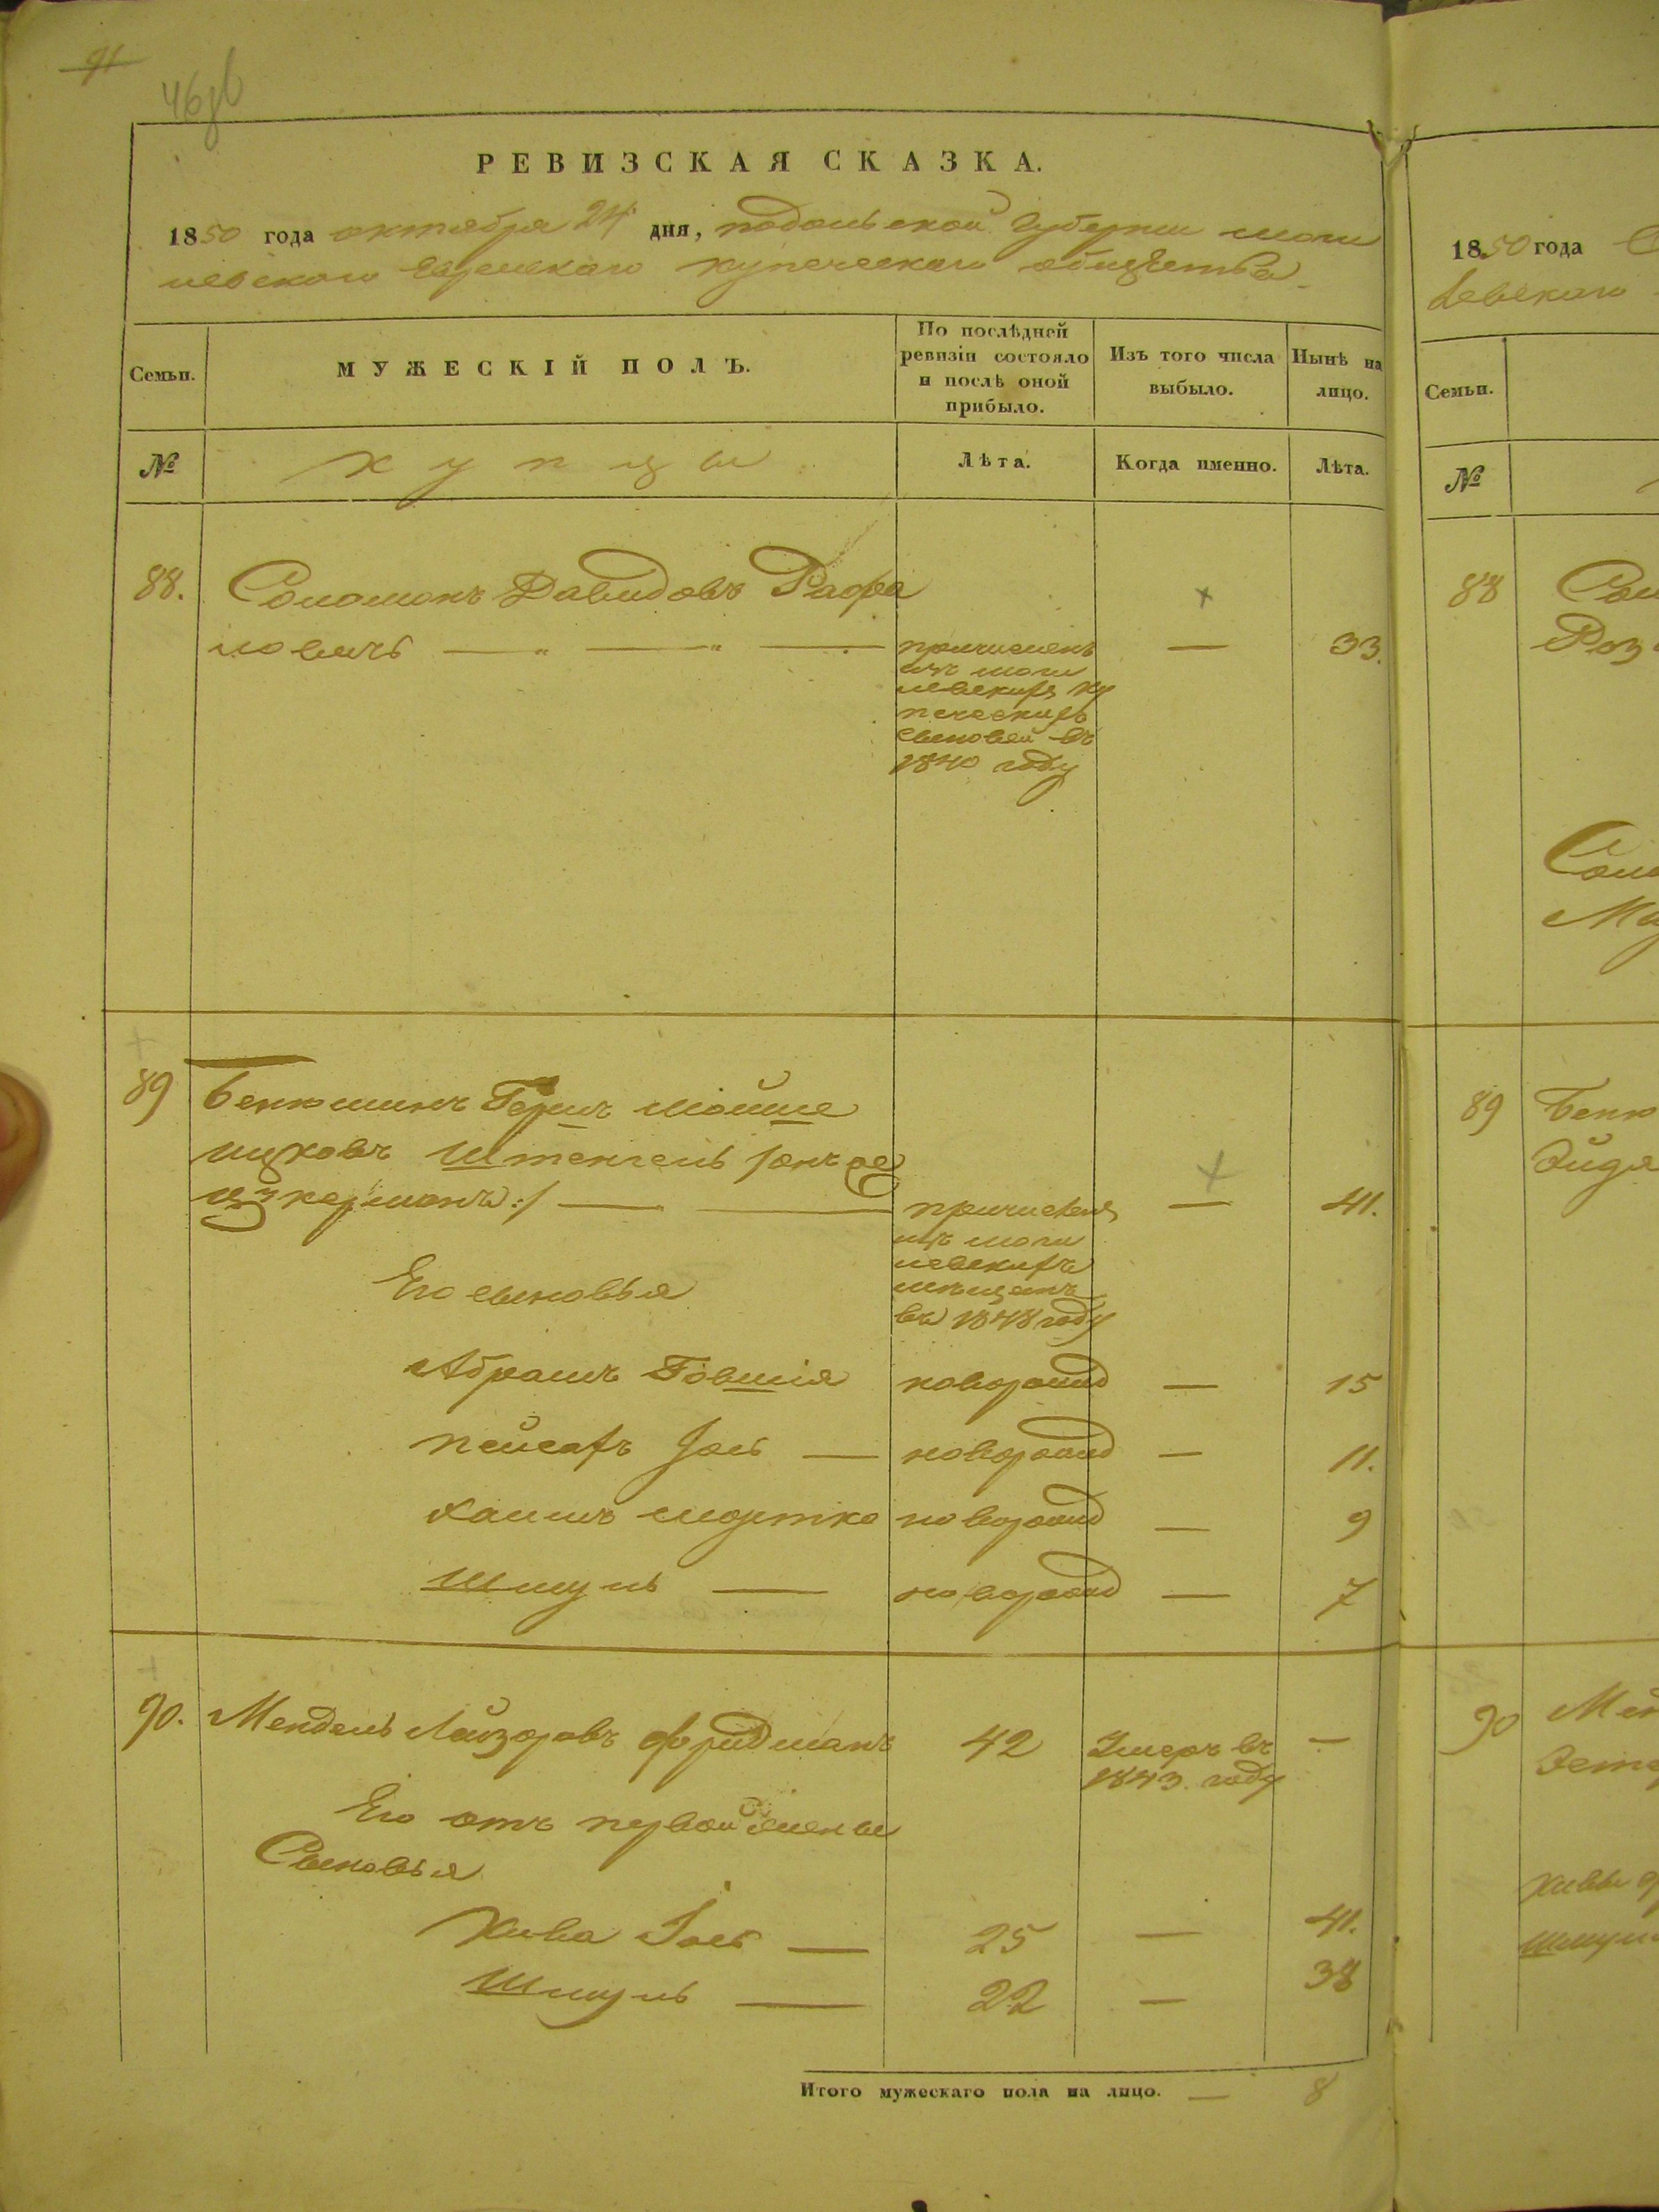 91
46об
РЕВИЗСКАЯ СКАЗКА.
1850 года октября 24 дня, подольской Губернии моги
левского Еврейскаго купеческаго общества
Семьи.
МУЖЕСКІЙ ПОЛЪ.
По послѣдней ревизіи состояло и послѣ оной прибыло.
Изъ того числа выбыло.
Нынѣ на лицо.
№
купцы
Лѣта.
Когда именно.
Лѣта.
88. Соломонъ Давидовъ Рафа
ловичъ — " — " — причисленъ — 33.
изъ моги
левскихъ ку
печескихъ
сыновей въ
1840 году
89 Бенюминъ Гершъ Мойше
Ицковъ Штенгель /онъ же
Цукерманъ:/ — — причислен — 41.
изъ моги
левскихъ
мѣщанъ
въ 1848 году
Его сыновья
Абрамъ Говшія новорожд — 15
пейсахъ Іось — новорожд — 11.
Хаимъ мортко новорожд — 9
Шмуль — новорожд — 7
90. Мендель Лейзоровъ фридманъ 42 Умеръ въ —
1843 году
Его отъ первой жены
Сыновья
Кива Іось — 25 — 41.
Шмуль — 22 — 38
Итого мужескаго пола на лицо. — 8
1850 года
левскаго
Семьи.
№
88
89 Беню
90
Шмул